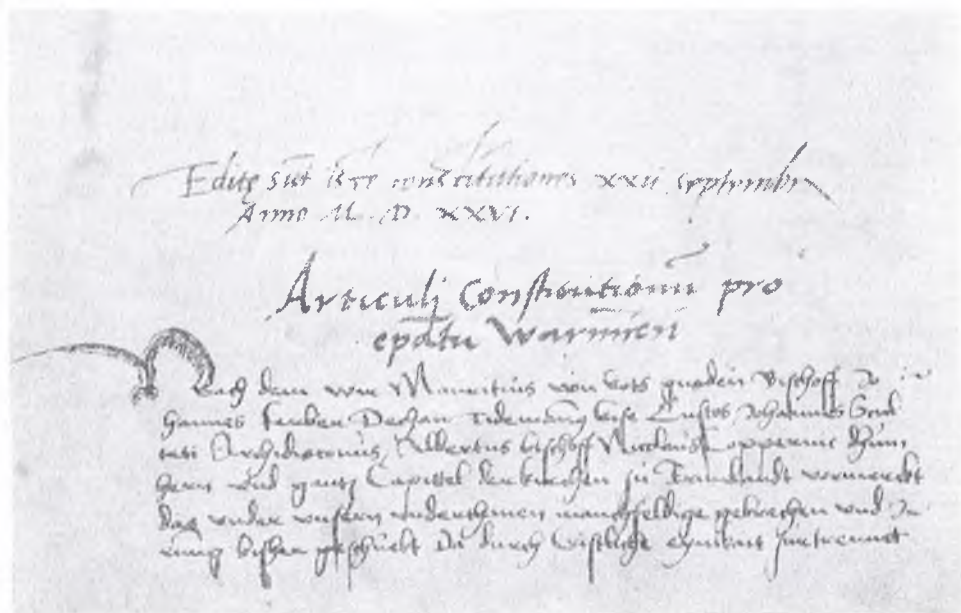 Edite sūt iste constitutiones xxii septembr
Anno M. D. XXVI.
Articulj Constitutionū pro
epātu Warmien
Nach dem wir Mauritius von gots gnaden Bischoff Jo
hannes Ferber Dechan Tidemannus Gise Custos Johannes Scul
teti Archidiaconus, Albertus bischoff Nicolaus Coppernic Thum
hern vnd gantz Capittel der kirchen zu Ermelandt vormerckt
das vnder vnsern vnderthanen manchfeldige gebrechen vnd
bisher geschickt Da durch Cristliche eynikeit